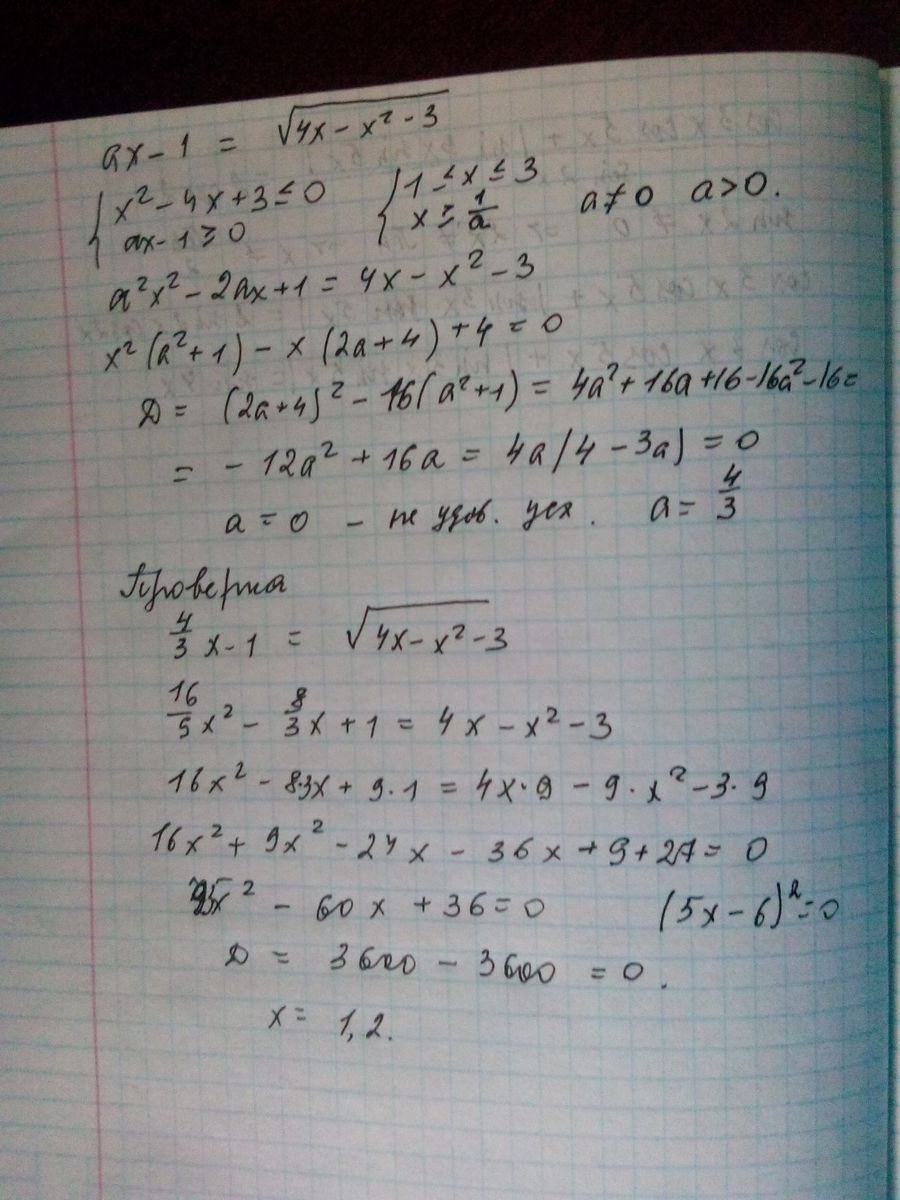 ax - 1 = √(4x - x² - 3)
{ x² - 4x + 3 ≤ 0 { 1 ≤ x ≤ 3 a ≠ 0 a > 0.
ax - 1 ≥ 0 x ≥ 1/a
a²x² - 2ax + 1 = 4x - x² - 3
x² (a² + 1) - x (2a + 4) + 4 = 0
D = (2a + 4)² - 16(a² + 1) = 4a² + 16a + 16 - 16a² - 16 =
= - 12a² + 16a = 4a(4 - 3a) = 0
a = 0 - не удов. усл. a = 4/3
Проверка
4/3 x - 1 = √(4x - x² - 3)
16/5 x² - 8/3 x + 1 = 4x - x² - 3
16x² - 8·3x + 9·1 = 4x·9 - 9·x² - 3·9
16x² + 9x² - 24x - 36x + 9 + 27 = 0
25x² - 60x + 36 = 0 (5x - 6)² = 0
D = 3600 - 3600 = 0.
x = 1,2.